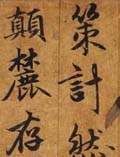 策計然
顛麓存